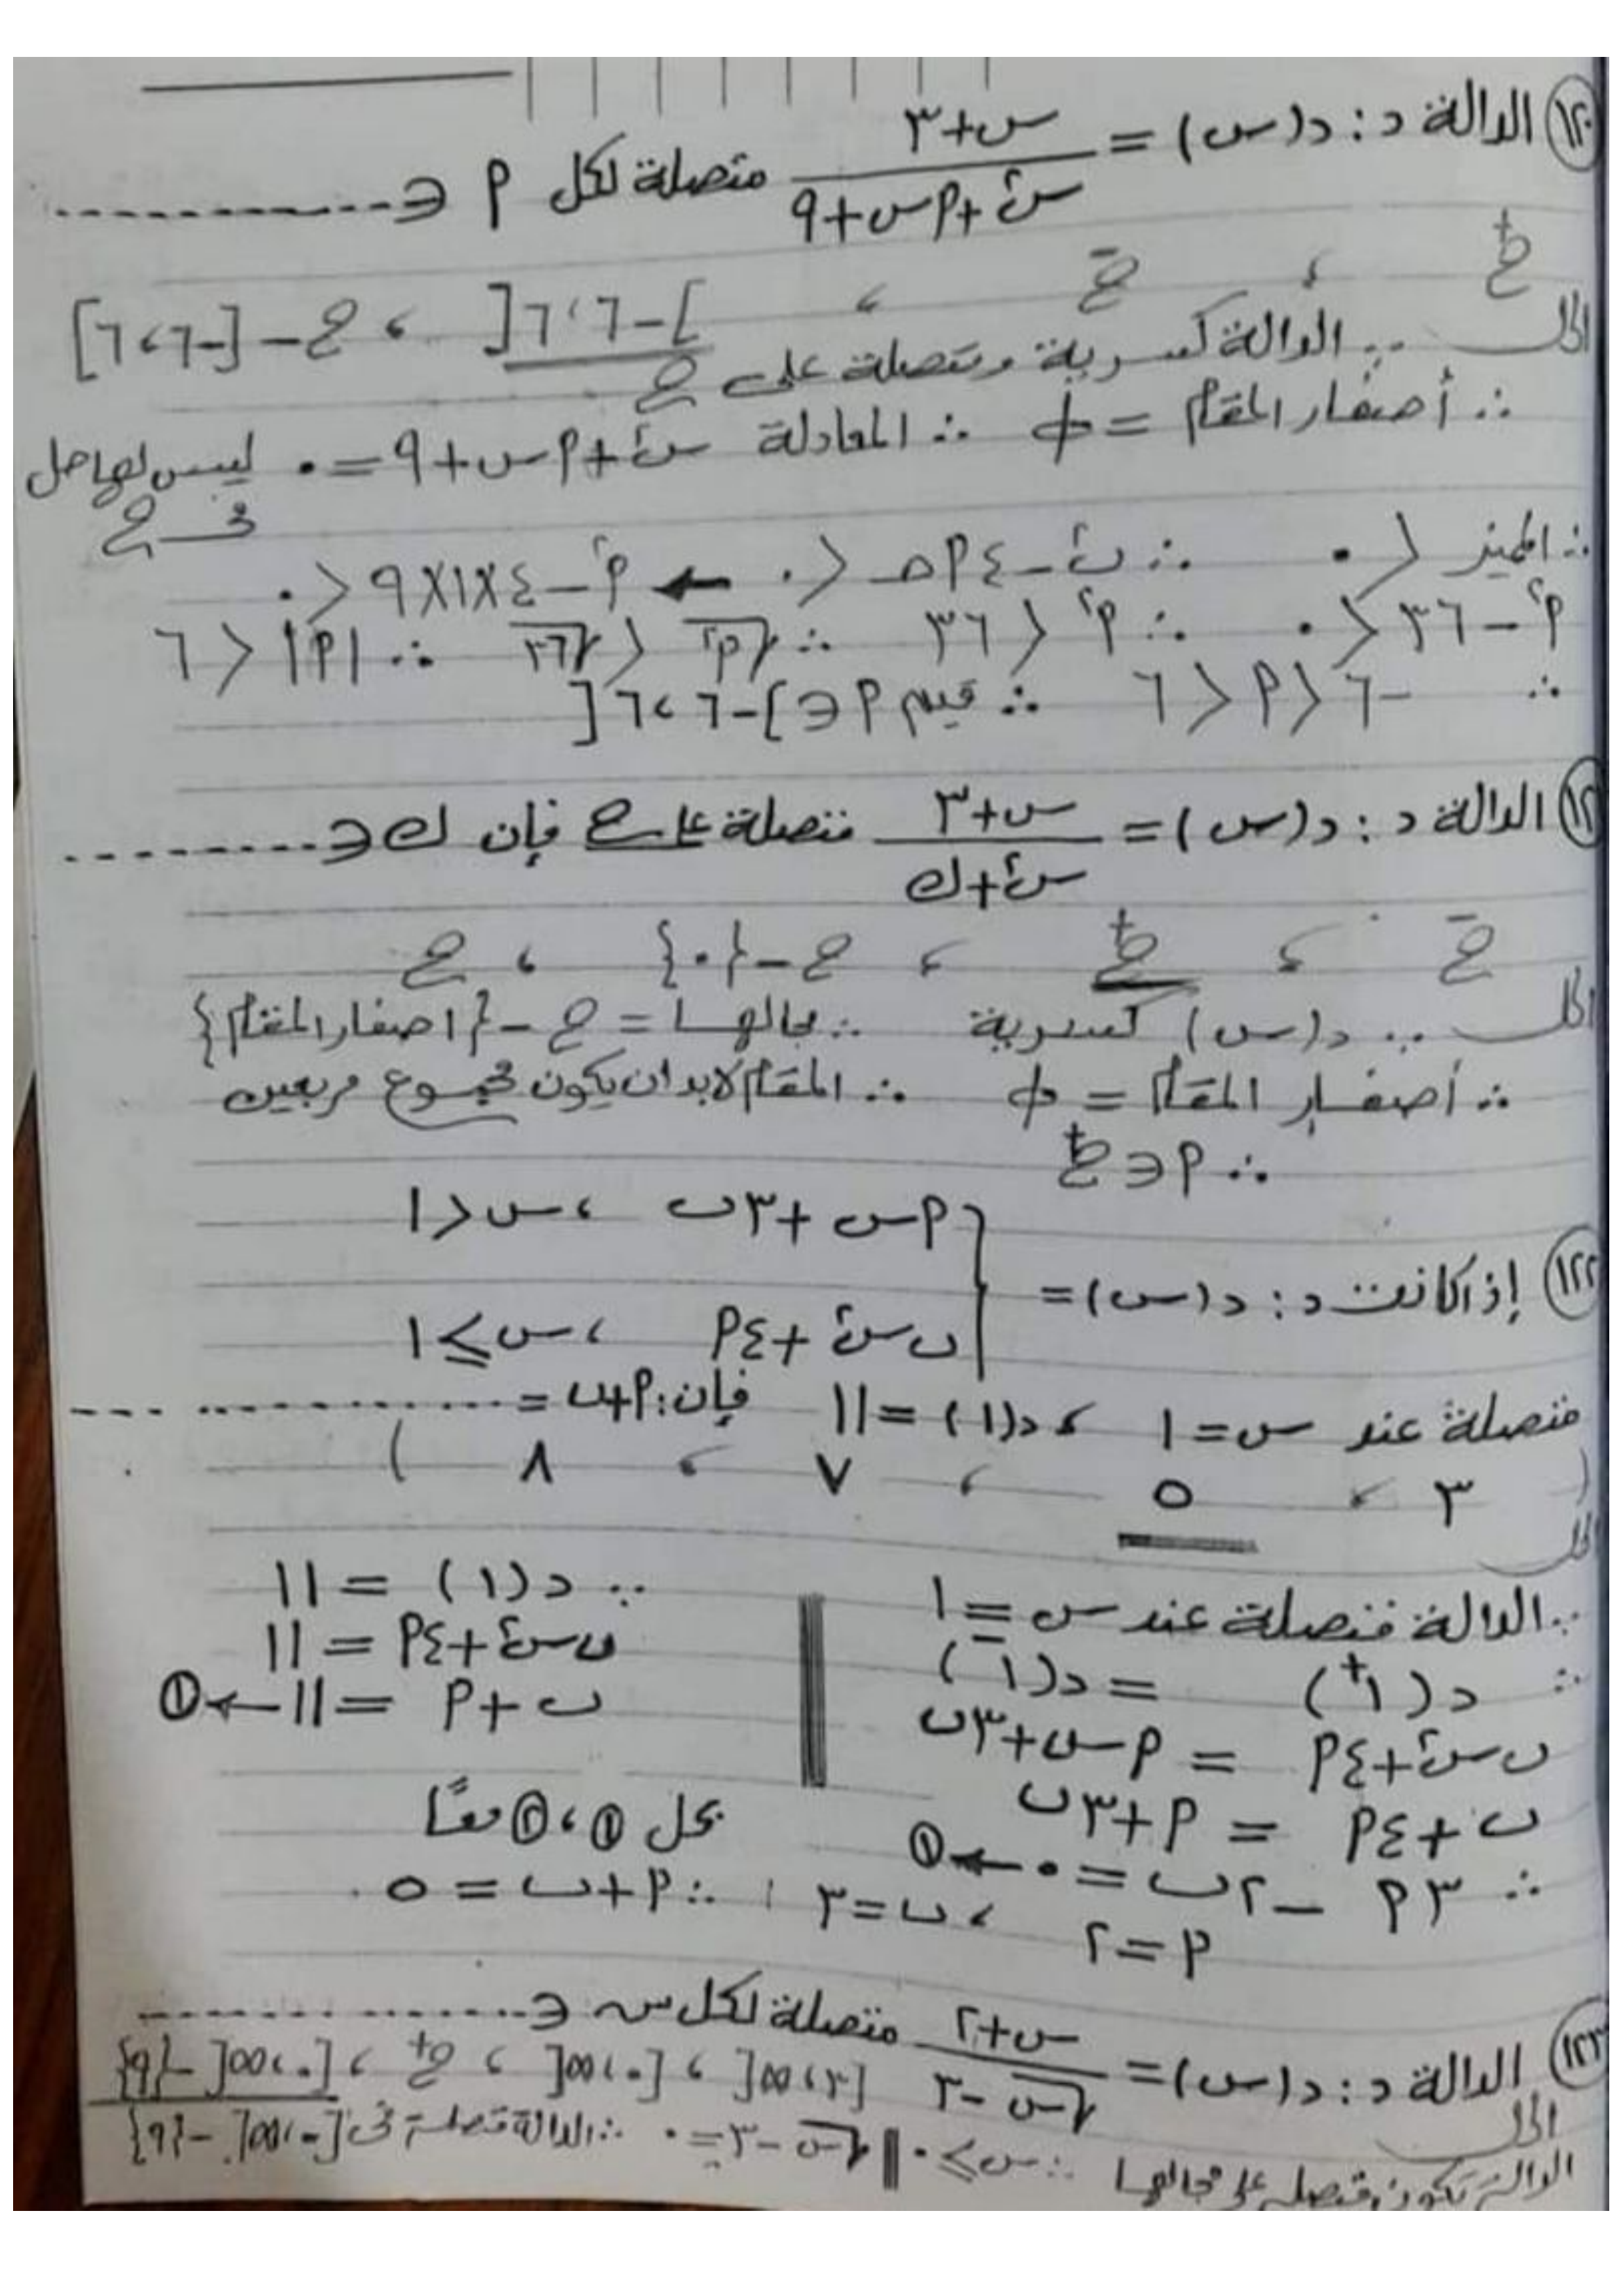 ١٢٠ الدالة د : د(س) = (س+٣)/(س²+٩س+٩) متصلة لكل ٩ ∈ ............
ح⁺ ، ح⁻ ، ]-٦،٦[ ، ح-[-٦،٦]
الحل ∵ الدالة كسرية ومتصلة على ح
∴ أصفار المقام = Φ ∴ المعادلة س²+٩س+٩=٠ ليس لها حل
في ح
∴ المميز < ٠ ∴ ب²-٤٩حـ < ٠ ← ٩²-٤×١×٩ < ٠
٩²-٣٦ < ٠ ∴ ٩² < ٣٦ ∴ √٩² < √٣٦ ∴ |٩| < ٦
∴ -٦ < ٩ < ٦ ∴ قيم ٩ ∈ ]-٦،٦[
الدالة د : د(س) = (س+٣)/(س²+ك) متصلة على ح فإن ك ∈ ............
ح⁻ ، ح⁺ ، ح-{٠} ، ح
الحل ∵ د(س) كسرية ∴ مجالها = ح-{اصفار المقام}
∴ أصفار المقام = Φ ∴ المقام لابد ان يكون مجموع مربعين
∴ ٩ ∈ ح⁺
٩س+٣ب ، س<١
١٢٢ إذ اكانت د : د(س) =
ب س²+٤٩ ، س≥١
متصلة عند س=١ ، د(١)=١١ فإن: ٩+ب = ............
( ٣ ، ٥ ، ٧ ، ٨ )
الحل
∵ الدالة متصلة عند س=١ ∵ د(١) = ١١
∴ د(١⁺) = د(١⁻) ب س²+٤٩ = ١١
ب س²+٤٩ = ٩س+٣ب ب+٩ = ١١ ← ①
ب+٤٩ = ٩+٣ب بحل ①،② معًا
∴ ٣٩-٢ب = ٠ ← ①
٩=٢ ، ب=٣ ∴ ٩+ب = ٥
١٢٣ الدالة د : د(س) = (س+٢)/(√س-٣) متصلة لكل س ∈ ............
[٣،∞[ ، [٠،∞[ ، ح⁺ ، [٠،∞[-{٩}
الحل
الدالة تكون متصلة على مجالها ∴ س≥٠ || √س-٣=٠ ∴ الدالة متصلة في [٠،∞[-{٩}